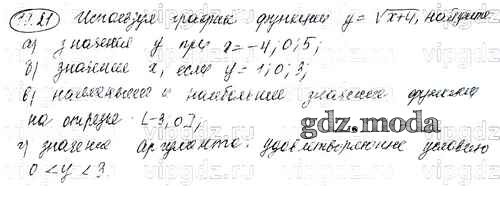 13.21 Используя график функции y = √x+4, найдите:
а) значения y при x = -4; 0; 5;
б) значения x, если y = 1; 0; 3;
в) наименьшее и наибольшее значения функции
на отрезке [-3, 0];
gdz.moda
г) значения аргумента, удовлетворяющие условию
0 < y < 3.